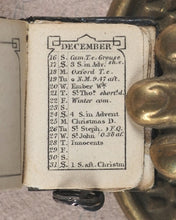 DECEMBER
16 S. Cam. T. e. Grouse
17 S. 3 S. in Adv.
18 M. Oxford T. e.
19 Tu N.M. 9.47 aft.
20 W. Ember Wk.
21 T. St. Thos. short. d.
22 F. Winter com.
23 S.
24 S. 4 S. in Advent
25 M. Christmas D.
26 Tu St. Steph. ☽ F.Q.
27 W. St. John
28 T. Innocents
29 F.
30 S.
31 S. 1 S. aft. Christm